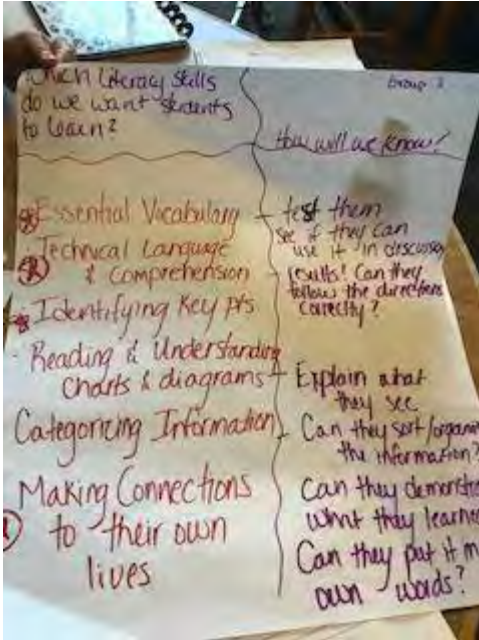 Which Literacy Skills
do we want students
to learn?
Group
How will we know?
Essential Vocabulary
Technical Language
& comprehension
Identifying key pts
Reading & Understanding
charts & diagrams
Categorizing Information
Making Connections
to their own
lives
test them
see if they can
use it in
results! Can they
follow the directions
correctly?
Explain what
they see
Can they sort/
the information?
Can they
what they
Can they put it
own words?